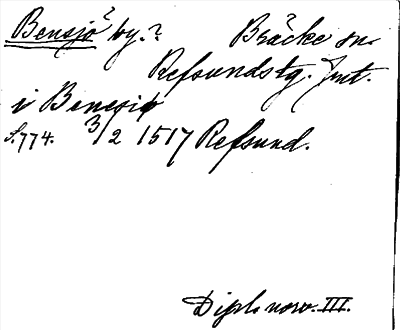 Bensjö? by.? Bräcke sn.
Refsundstg. Jmt.
i Benesiø
S. 774. 3/2 1517 Refsund.
Dipl. norv. III.